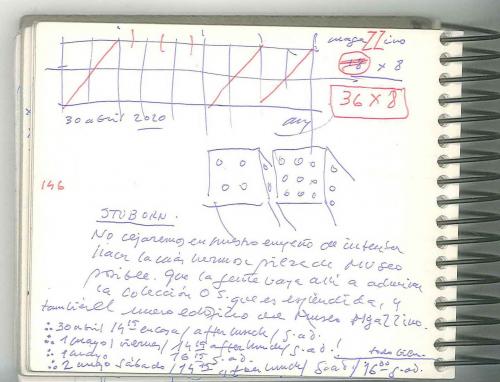 magaZZino
18 x 8
36 x 8
30 abril 2020
146
STUBORN.
No cejaremos en nuestro empeño de intentar
hacer la más hermosa pieza de Museo
posible. Que la gente vaya allí a admirar
la colección OS. que es espléndida, y
también el nuevo edificio de Museo MgaZZino.
30 abril 14 15 en casa / after lunch / S. ad.
1 mayo / viernes / 14 15 after lunch / S. ad. !
1 mayo 16 15 S. ad.
2 mayo Sábado / 14 15 / after lunch / S. ad / 16 00 S. ad.